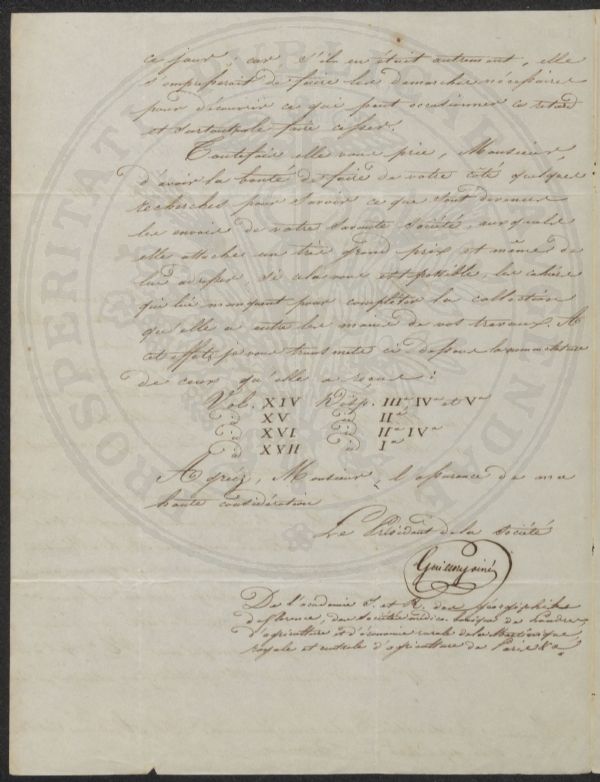 ce jour, car s'il en était autrement, elle
s'empresserait de faire les demarches nécessaires
pour découvrir ce qui peut occasionner ce retard
et surtout de le faire cesser.
Toutefois elle vous prie, Monsieur,
d'avoir la bonté de faire de votre coté quelques
recherches pour savoir ce que sont devenus
les envois de votre Savante Société, auxquels
elle attache un très grand prix et même de
lui adresser, si cela vous est possible, les cahiers
qui lui manquent pour complèter la collection
qu'elle a entre les mains de vos travaux. A
cet effet je vous transmets ci-dessous la nomenclature
de ceux qu'elle a reçus:
Vol. XIV Disp. IIIa IVa et Va
id XV id IIa
id XVI id IIa IVa
id XVII id Ia
Agréez, Monsieur, l'assurance de ma
haute considération
Le Président de la Société
De l'académie I. et R. des Géorgiphiles
de florence, des Sociétés médico-botanique de Londres
d'agriculture et d'économie rurale de la Martinique
royale et centrale d'agriculture de Paris &a
PROSPERITATI PUBLICAE AUGENDAE